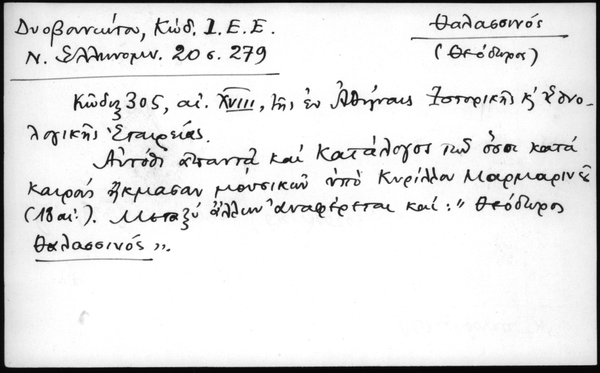 Δυοβουνιώτου, Κώδ. Ι. Ε. Ε.
Ν. Ελληνομν. 20 σ. 279
Θαλασσινός
(Θεόδωρος)
Κώδιξ 305, αἰ. XVIII, τῆς ἐν Ἀθήναις Ἱστορικῆς κ' Ἐθνο-
λογικῆς Ἑταιρείας.
Αὐτόθι ἀπαντᾶ καὶ Κατάλογος τῶν ὅσοι κατὰ
καιροὺς ἤκμασαν μουσικῶν ὑπὸ Κυρίλλου Μαρμαρινοῦ
(18 αἰ.). Μεταξὺ ἄλλων ἀναφέρεται καὶ: " Θεόδωρος
Θαλασσινός ".